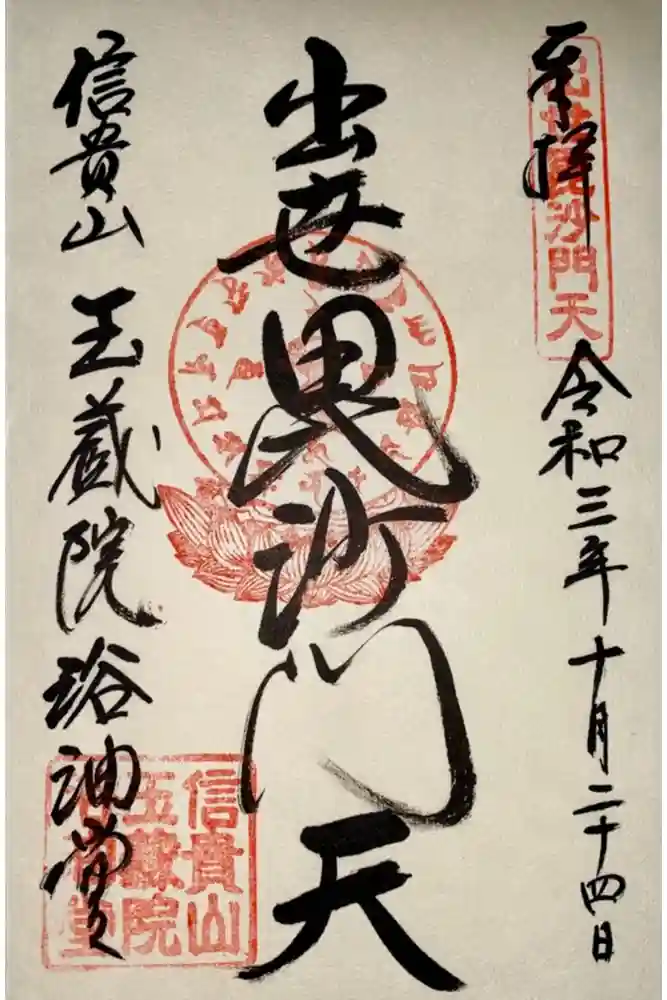 奉拝
出世毘沙門天
令和三年十月二十四日
出世毘沙門天
信貴山 玉蔵院 浴油堂
信貴山
玉蔵院